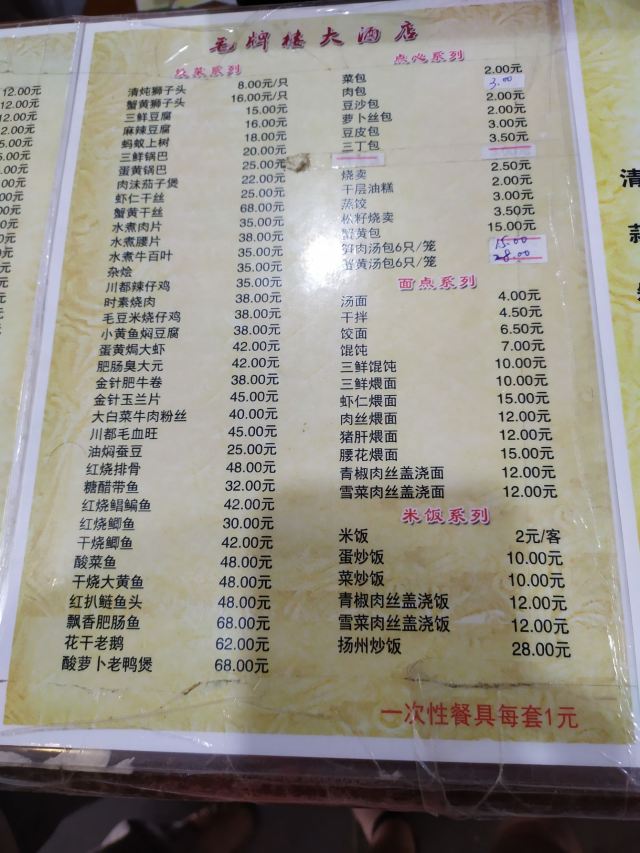 毛牌楼大酒店
菜系列
清炖狮子头 8.00元/只
蟹黄狮子头 16.00元/只
三鲜豆腐 15.00元
麻辣豆腐 16.00元
蚂蚁上树 18.00元
三鲜锅巴 20.00元
蛋黄锅巴 25.00元
肉沫茄子煲 22.00元
虾仁干丝 25.00元
蟹黄干丝 68.00元
水煮肉片 35.00元
水煮腰片 38.00元
水煮牛百叶 35.00元
杂烩 35.00元
川都辣仔鸡 35.00元
时素烧肉 38.00元
毛豆米烧仔鸡 38.00元
小黄鱼焖豆腐 38.00元
蛋黄焗大虾 42.00元
肥肠臭大元 42.00元
金针肥牛卷 38.00元
金针玉兰片 45.00元
大白菜牛肉粉丝 40.00元
川都毛血旺 45.00元
油焖蚕豆 25.00元
红烧排骨 48.00元
糖醋带鱼 32.00元
红烧鲳鳊鱼 42.00元
红烧鲫鱼 30.00元
干烧鲫鱼 42.00元
酸菜鱼 48.00元
干烧大黄鱼 48.00元
红扒鲢鱼头 48.00元
飘香肥肠鱼 68.00元
花干老鹅 62.00元
酸萝卜老鸭煲 68.00元
点心系列
菜包 2.00元
肉包 3.00
豆沙包 2.00元
萝卜丝包 2.00元
豆皮包 3.00元
三丁包 3.50元
烧卖 2.50元
千层油糕 2.00元
蒸饺 3.00元
松籽烧卖 3.50元
蟹黄包 15.00元
笋肉汤包6只/笼 15.00
蟹黄汤包6只/笼 28.00
面点系列
汤面 4.00元
干拌 4.50元
饺面 6.50元
馄饨 7.00元
三鲜馄饨 10.00元
三鲜煨面 10.00元
虾仁煨面 15.00元
肉丝煨面 12.00元
猪肝煨面 12.00元
腰花煨面 15.00元
青椒肉丝盖浇面 12.00元
雪菜肉丝盖浇面 12.00元
米饭系列
米饭 2元/客
蛋炒饭 10.00元
菜炒饭 10.00元
青椒肉丝盖浇饭 12.00元
雪菜肉丝盖浇饭 12.00元
扬州炒饭 28.00元
一次性餐具每套1元
清